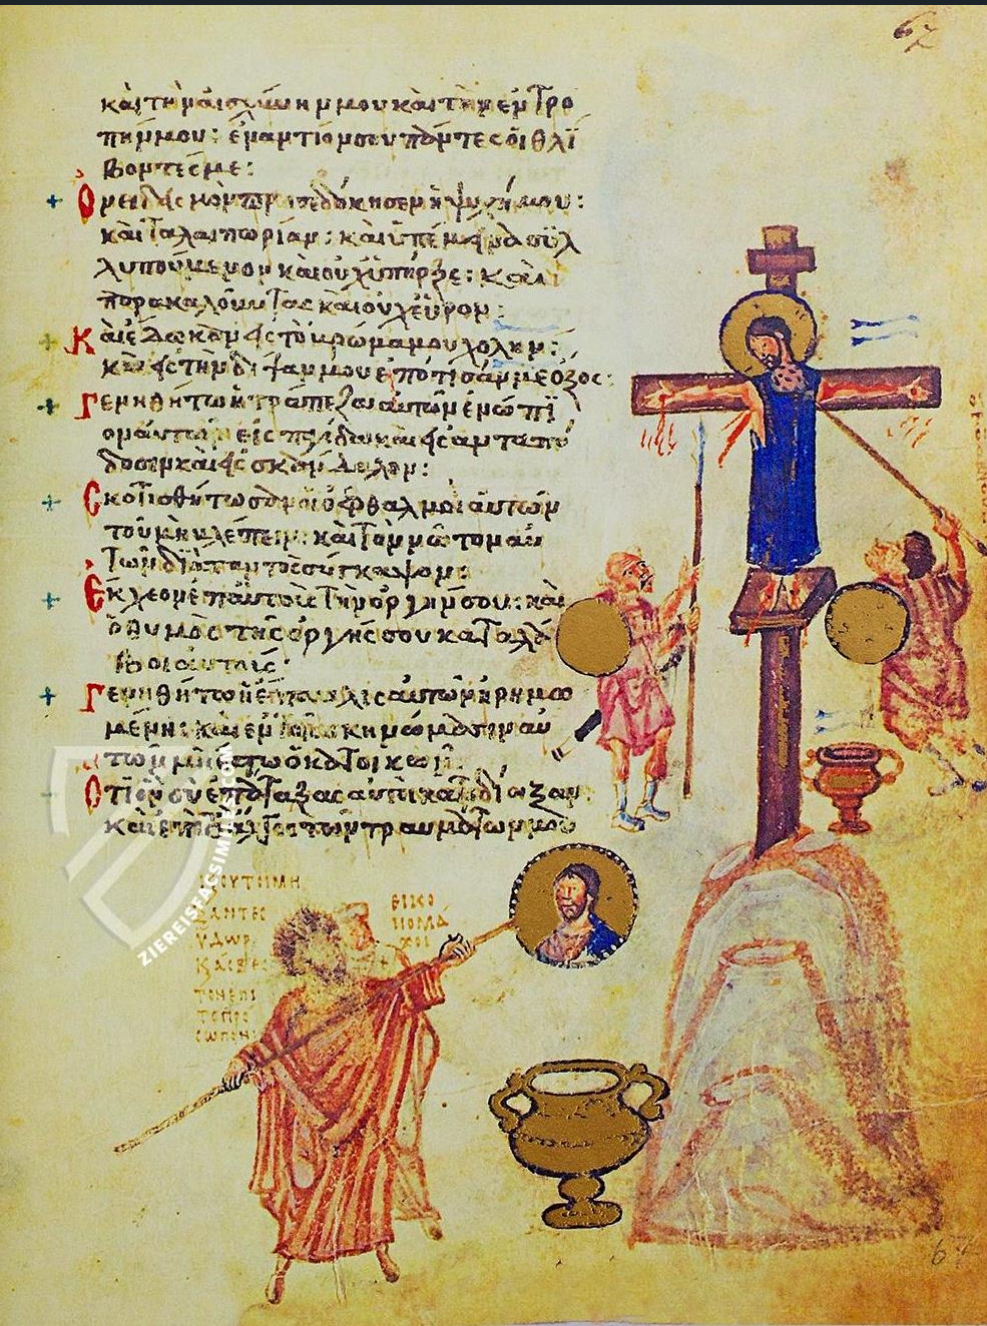 67
καὶ τὴν αἰσχύνην μου καὶ τὴν ἐντρο
πήν μου: ἐναντίον σου πάντες οἱ θλί
βοντές με:
καὶ ταλαιπωρίαν: καὶ ὑπέμεινα συλ
λυπούμενον καὶ οὐχ ὑπῆρξε: καὶ
παρακαλοῦντας καὶ οὐχ εὗρον:
Καὶ ἔδωκαν εἰς τὸ βρῶμά μου χολὴν:
καὶ εἰς τὴν δίψαν μου ἐπότισάν με ὄξος:
Γενηθήτω ἡ τράπεζα αὐτῶν ἐνώπι
ον αὐτῶν εἰς παγίδα καὶ εἰς ἀνταπό
δοσιν καὶ εἰς σκάνδαλον:
Σκοτισθήτωσαν οἱ ὀφθαλμοὶ αὐτῶν
τοῦ μὴ βλέπειν: καὶ τὸν νῶτον αὐ
τῶν διὰ παντὸς σύγκαμψον:
Ἔκχεον ἐπ' αὐτοὺς τὴν ὀργήν σου: καὶ
ὁ θυμὸς τῆς ὀργῆς σου καταλά
βοι αὐτούς:
Γενηθήτω ἡ ἔπαυλις αὐτῶν ἠρημω
μένη: καὶ ἐν τοῖς σκηνώμασιν αὐ
τῶν μὴ ἔστω ὁ κατοικῶν:
ZIEREIS FACSIMILES.COM
ΥΔΩΡ
ΕΙΚΟ
ΝΟΜΑ
ΧΟΙ
67